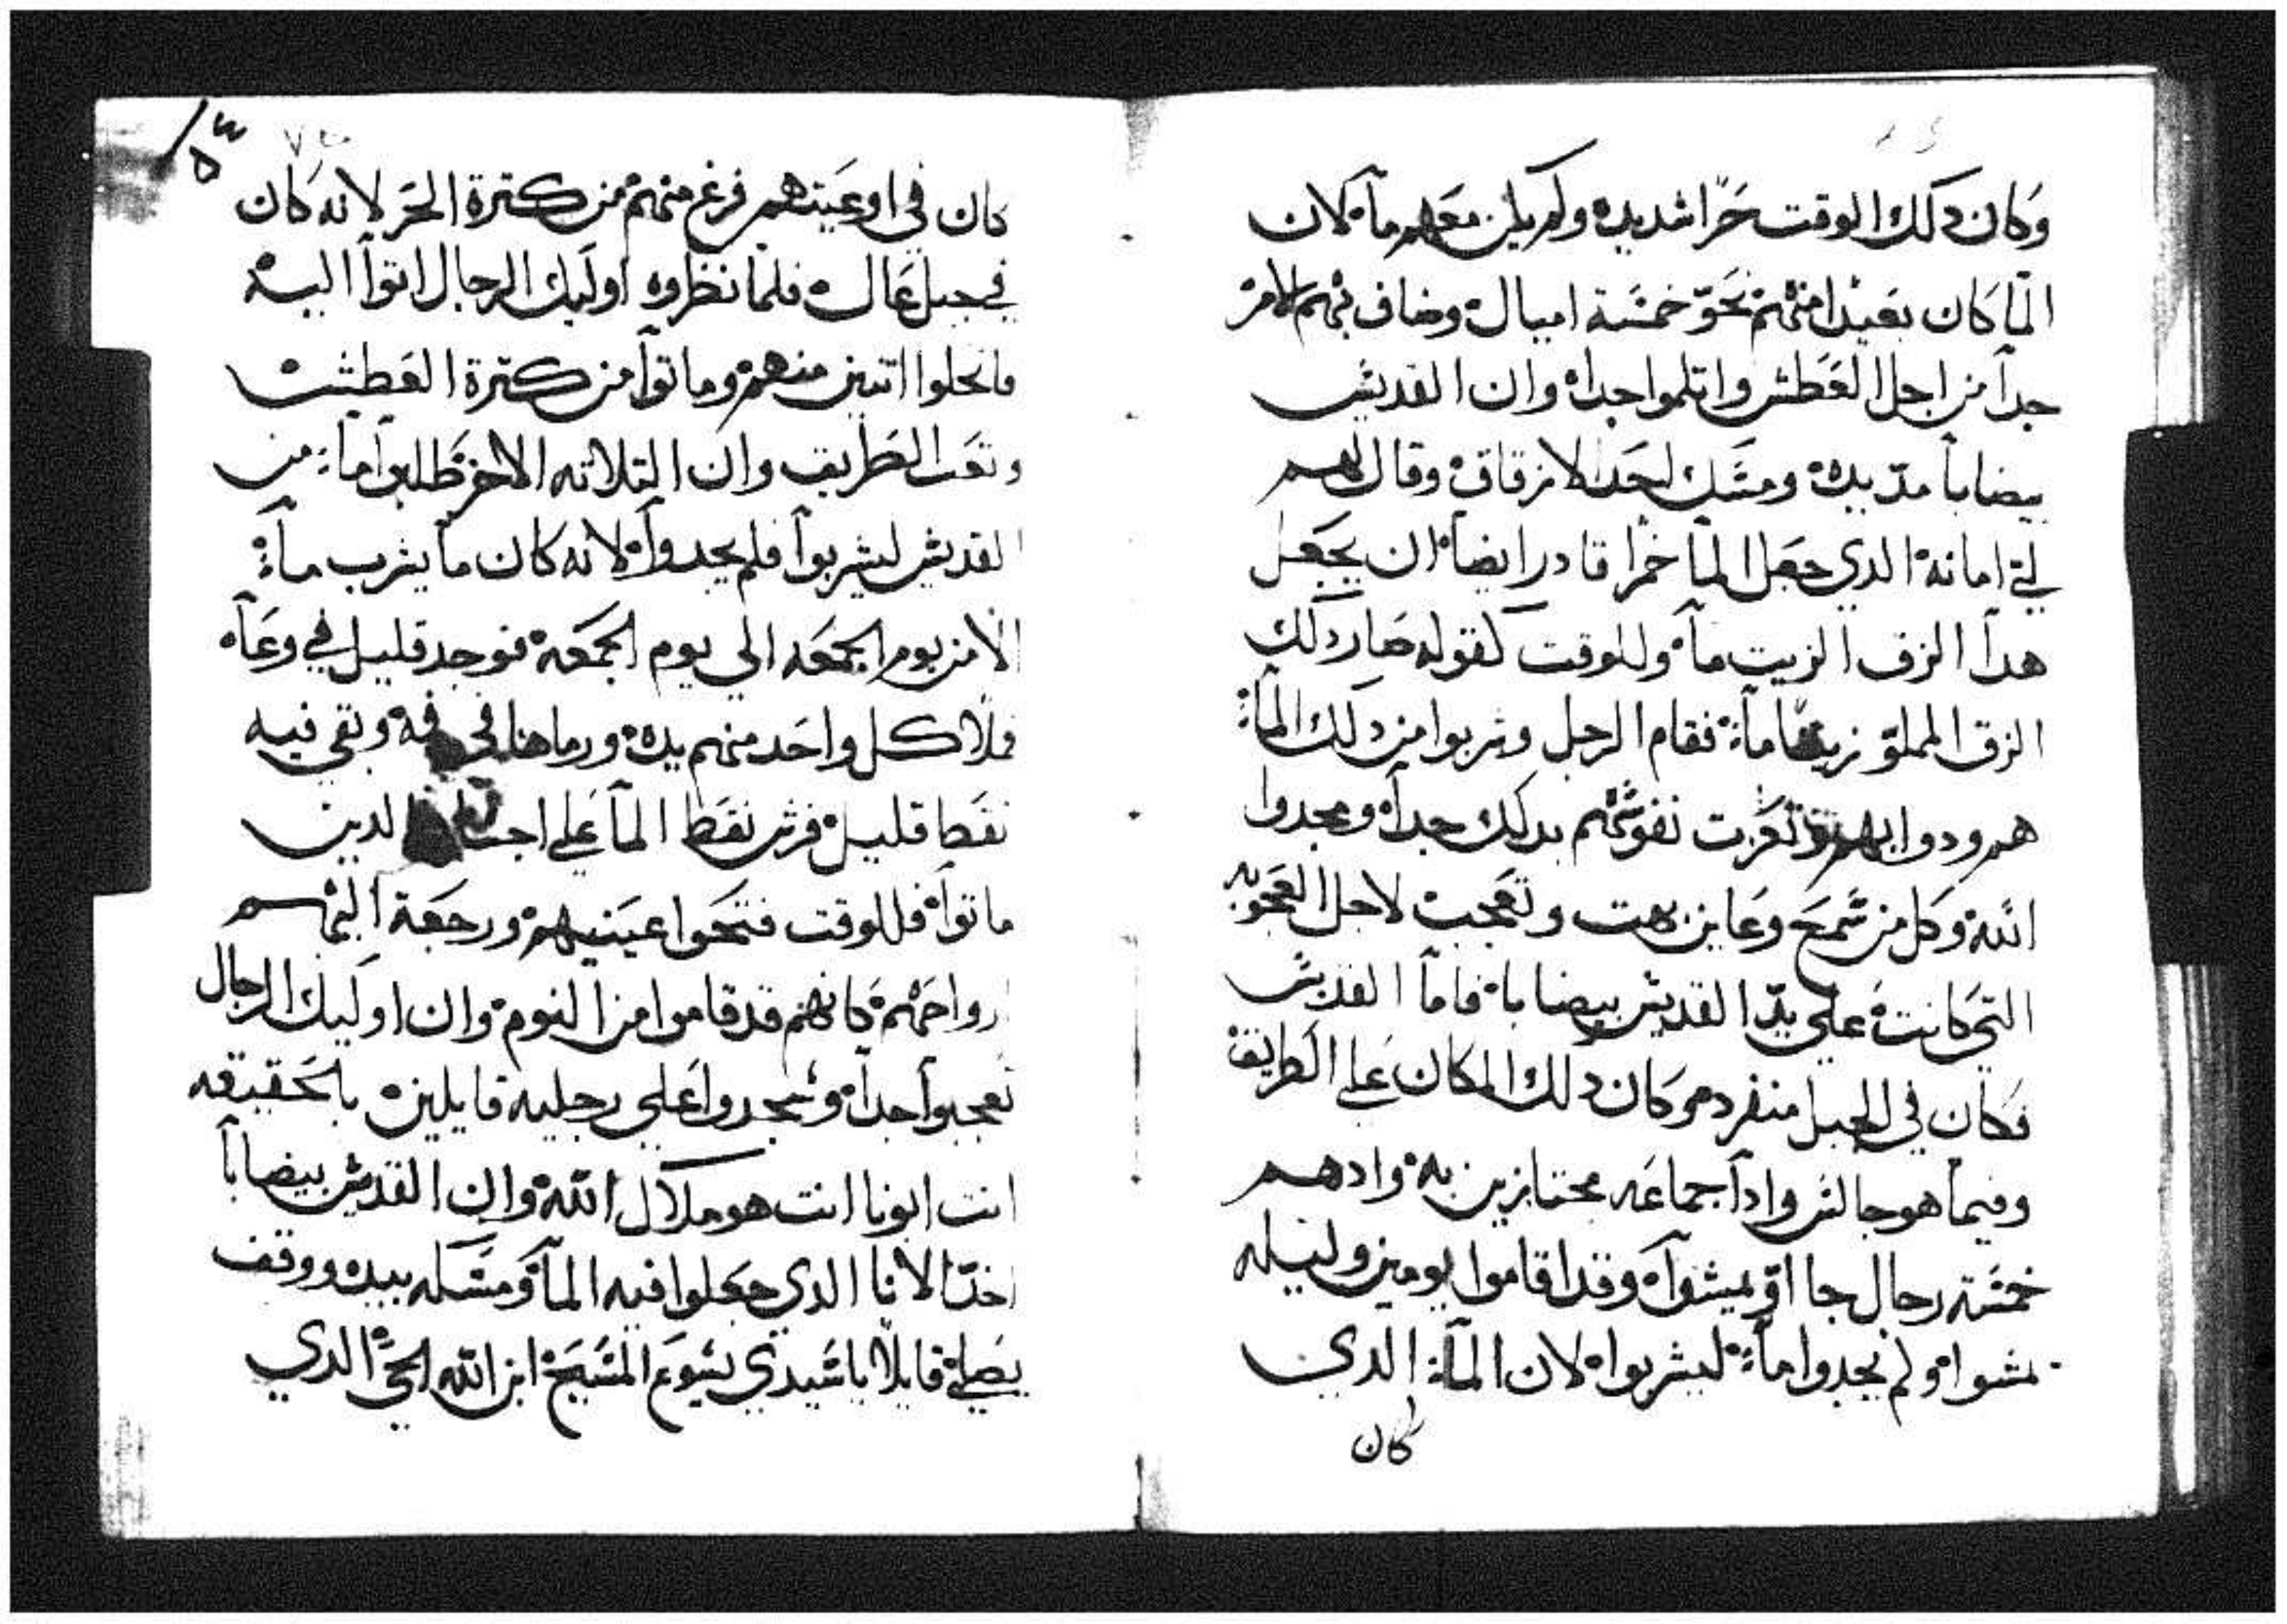 وكان دلك الوقت حرا شديده ولم يكن معهم ماء لان
الما كان بعيدا منهم نحو خمسة اميال وضاف بهم الامر
جدا من اجل العطش واتلموا جدا وان القديس
بيضابا مد يده ومسك لحد الازقاق وقال لهم
لي امانة الدي جعل الما خمرا قادر ايضا ان يجعل
هدا الزف الزيت ماء وللوقت كقوله صار دلك
الزق المملو زيتا ماء فقام الرجل وشربوا من دلك الماء
هم ودوابهم وتعزت نفوسهم بدلك جدا ومجدوا
الله وكل من سمع وعاين بهت وتعجب لاجل العجوبه
التي كانت على يد القديس بيضابا فاما القديس
فكان في الجبل منفرد وكان دلك المكان على الطريق
وفيما هو جالس وادا جماعه مجتازين به وادهم
خمسة رجال جااو يمشوا وقد اقاموا يومين وليله
يمشوا ولم يجدوا ماء ليشربوا لان الماء الدي
كان
٥٣
كان في اوعيتهم فرغ منهم من كترة الحر لانه كان
في جبل عال فلما نظروه اوليك الرجال اتوا اليه
فانحلوا اتنين منهم وماتوا من كترة العطش
وتعب الطريق وان التلاته الاخر طلبوا ماء من
القديس ليشربوا فلم يجدوا لانه كان ما يشرب ماء
الا من يوم الجمعه الى يوم الجمعة فوجد قليل في وعاه
فملا كل واحد منهم يده ورماها في فمه وبقي فيه
نقط قليل فرش نقط الما على اجساد الدين
ماتوا فللوقت فتحوا عينيهم ورجعة اليهم
ارواحهم كانهم قد قاموا من النوم وان اوليك الرجال
تعجبوا جدا وسجدوا على رجليه قايلين بالحقيقه
انت ابونا انت هو ملاك الله وان القديس بيضابا
اخد الانا الدي جعلوا فيه الما ومسكه بيده ووقف
يصلي قايلا يا سيدي يسوع المسيح ابن الله الحي الدي